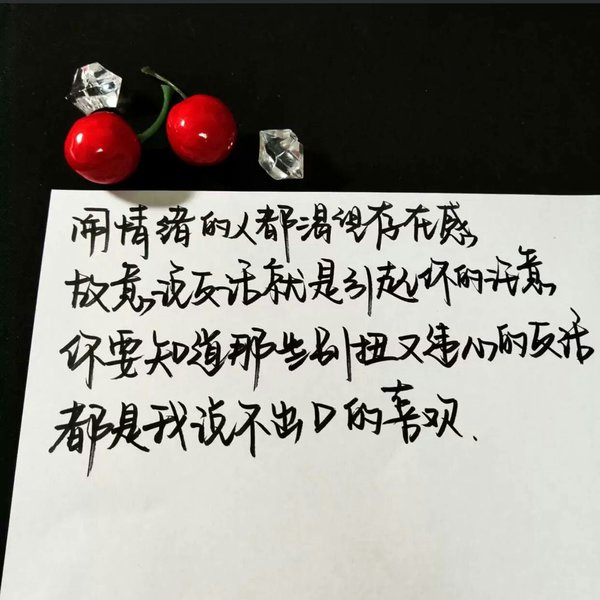 闹情绪的人都渴望存在感
故意说反话就是引起你的注意
你要知道那些别扭又违心的反话
都是我说不出口的喜欢.